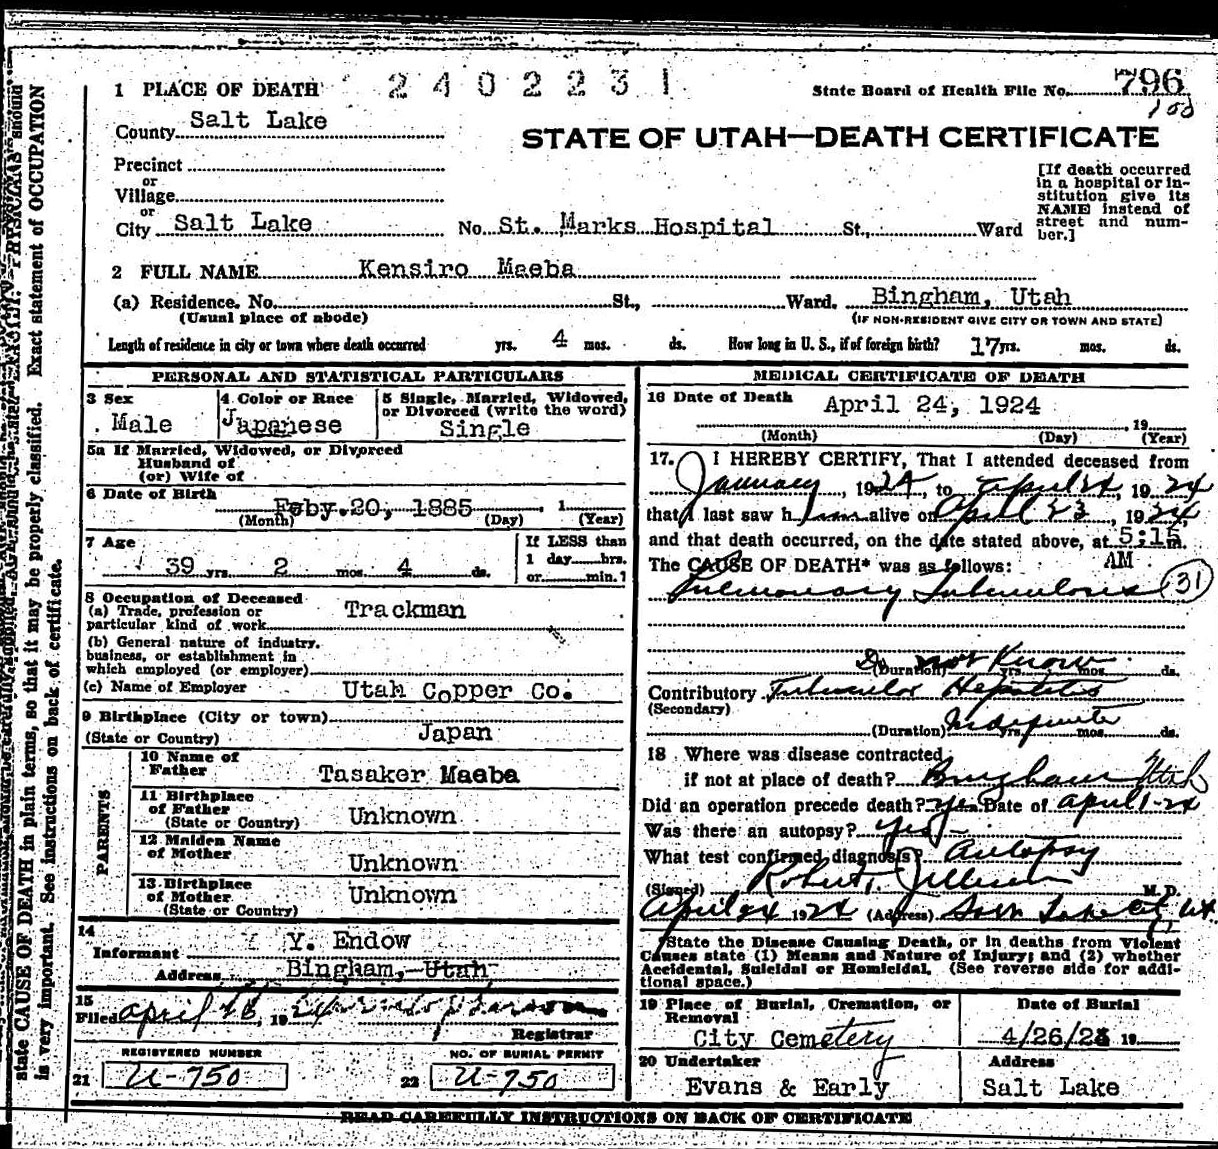 1 PLACE OF DEATH 2402231 State Board of Health File No. 796
County Salt Lake
STATE OF UTAH—DEATH CERTIFICATE
Precinct
or
Village
or
City Salt Lake No. St. Marks Hospital St., Ward
[If death occurred
in a hospital or in-
stitution give its
NAME instead of
street and num-
ber.]
2 FULL NAME Kensiro Maeba
(a) Residence. No. St., Ward. Bingham, Utah
(Usual place of abode) (IF NON-RESIDENT GIVE CITY OR TOWN AND STATE)
Length of residence in city or town where death occurred yrs. 4 mos. ds. How long in U. S., if of foreign birth? 17 yrs. mos. ds.
PERSONAL AND STATISTICAL PARTICULARS
3 Sex
Male
4 Color or Race
Japanese
5 Single, Married, Widowed,
or Divorced (write the word)
Single
5a If Married, Widowed, or Divorced
Husband of
(or) Wife of
6 Date of Birth
Feby. 20, 1885 , 1
(Month) (Day) (Year)
7 Age
39 yrs. 2 mos. 4 ds.
If LESS than
1 day hrs.
or min.?
8 Occupation of Deceased
(a) Trade, profession or
particular kind of work Trackman
(b) General nature of industry,
business, or establishment in
which employed (or employer)
(c) Name of Employer Utah Copper Co.
9 Birthplace (City or town)
(State or Country) Japan
PARENTS
10 Name of
Father Tasaker Maeba
11 Birthplace
of Father
(State or Country) Unknown
12 Maiden Name
of Mother Unknown
13 Birthplace
of Mother
(State or Country) Unknown
14
Informant Y. Endow
Address Bingham, Utah
15
Filed April 26, 1924
Registrar
REGISTERED NUMBER NO. OF BURIAL PERMIT
21 U-750 22 U-750
MEDICAL CERTIFICATE OF DEATH
16 Date of Death April 24, 1924
, 19
(Month) (Day) (Year)
17. I HEREBY CERTIFY, That I attended deceased from
January, 1924, to April 24, 1924
that I last saw him alive on April 23, 1924,
and that death occurred, on the date stated above, at 5:15 m.
AM
The CAUSE OF DEATH* was as follows:
Pulmonary Tuberculosis 31
Do not Know
(Duration) yrs. mos. ds.
Contributory Tubercular Hepatitis
(Secondary)
(Duration) Indefinite yrs. mos. ds.
18 Where was disease contracted
if not at place of death? Bingham Utah
Did an operation precede death? Yes Date of April 1-24
Was there an autopsy? Yes
What test confirmed diagnosis? Autopsy
(Signed) M. D.
April 24 1924 (Address) Salt Lake City Ut.
*State the Disease Causing Death, or in deaths from Violent
Causes state (1) Means and Nature of Injury; and (2) whether
Accidental, Suicidal or Homicidal. (See reverse side for addi-
tional space.)
19 Place of Burial, Cremation, or
Removal
City Cemetery
Date of Burial
4/26/24 19
20 Undertaker
Evans & Early
Address
Salt Lake
READ CAREFULLY INSTRUCTIONS ON BACK OF CERTIFICATE
state CAUSE OF DEATH in plain terms, so that it may be properly classified. Exact statement of OCCUPATION
is very important. See instructions on back of certificate.